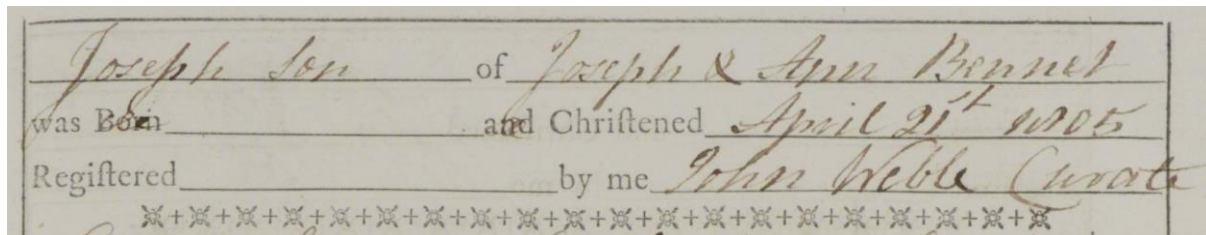 Joseph Son of Joseph & Ann Bennet
was Born and Chriſtened April 21st 1805
Regiſtered by me John Weble Curate